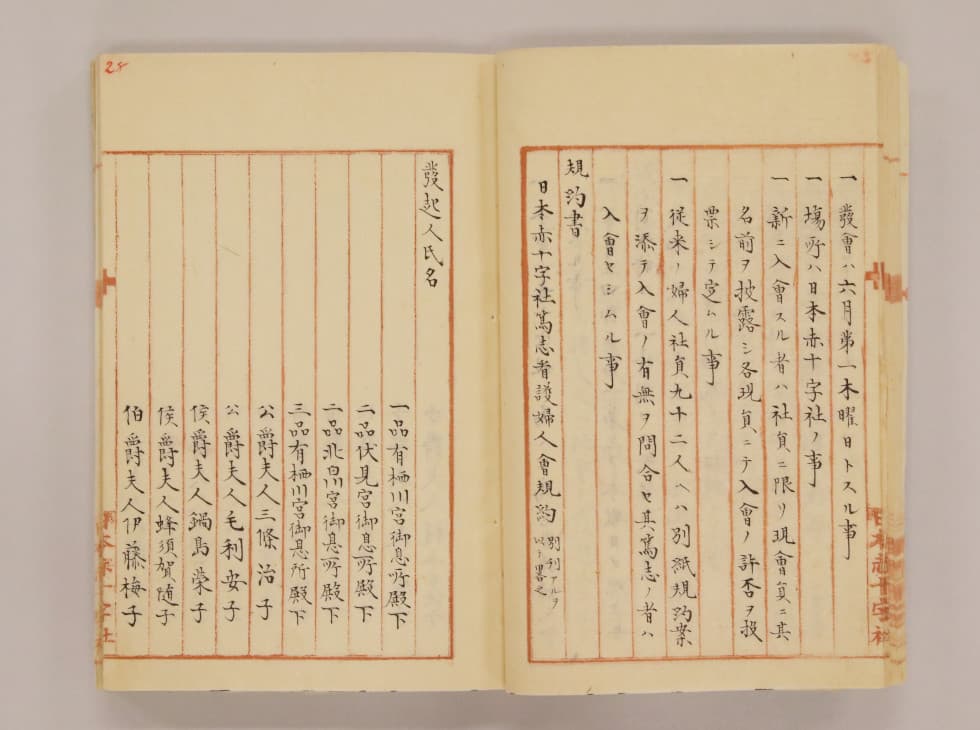 一 發會ハ六月第一木曜日トスル事
一 場所ハ日本赤十字社ノ事
一 新ニ入會スル者ハ社員ニ限リ現會員ニ其
名前ヲ披露シ各現員ニテ入會ノ許否ヲ投
票シテ定ムル事
一 従来ノ婦人社員九十二人ヘハ別紙規約案
ヲ添テ入會ノ有無ヲ問合セ其篤志ノ者ハ
入會セシムル事
規約書
日本赤十字社篤志看護婦人會規約 別刊アルヲ
以テ畧之
28
發起人氏名
一品有栖川宮御息所殿下
二品伏見宮御息所殿下
二品北白川宮御息所殿下
三品有栖川宮御息所殿下
公爵夫人三條治子
公爵夫人毛利安子
侯爵夫人鍋島榮子
侯爵夫人蜂須賀随子
伯爵夫人伊藤梅子
日本赤十字社